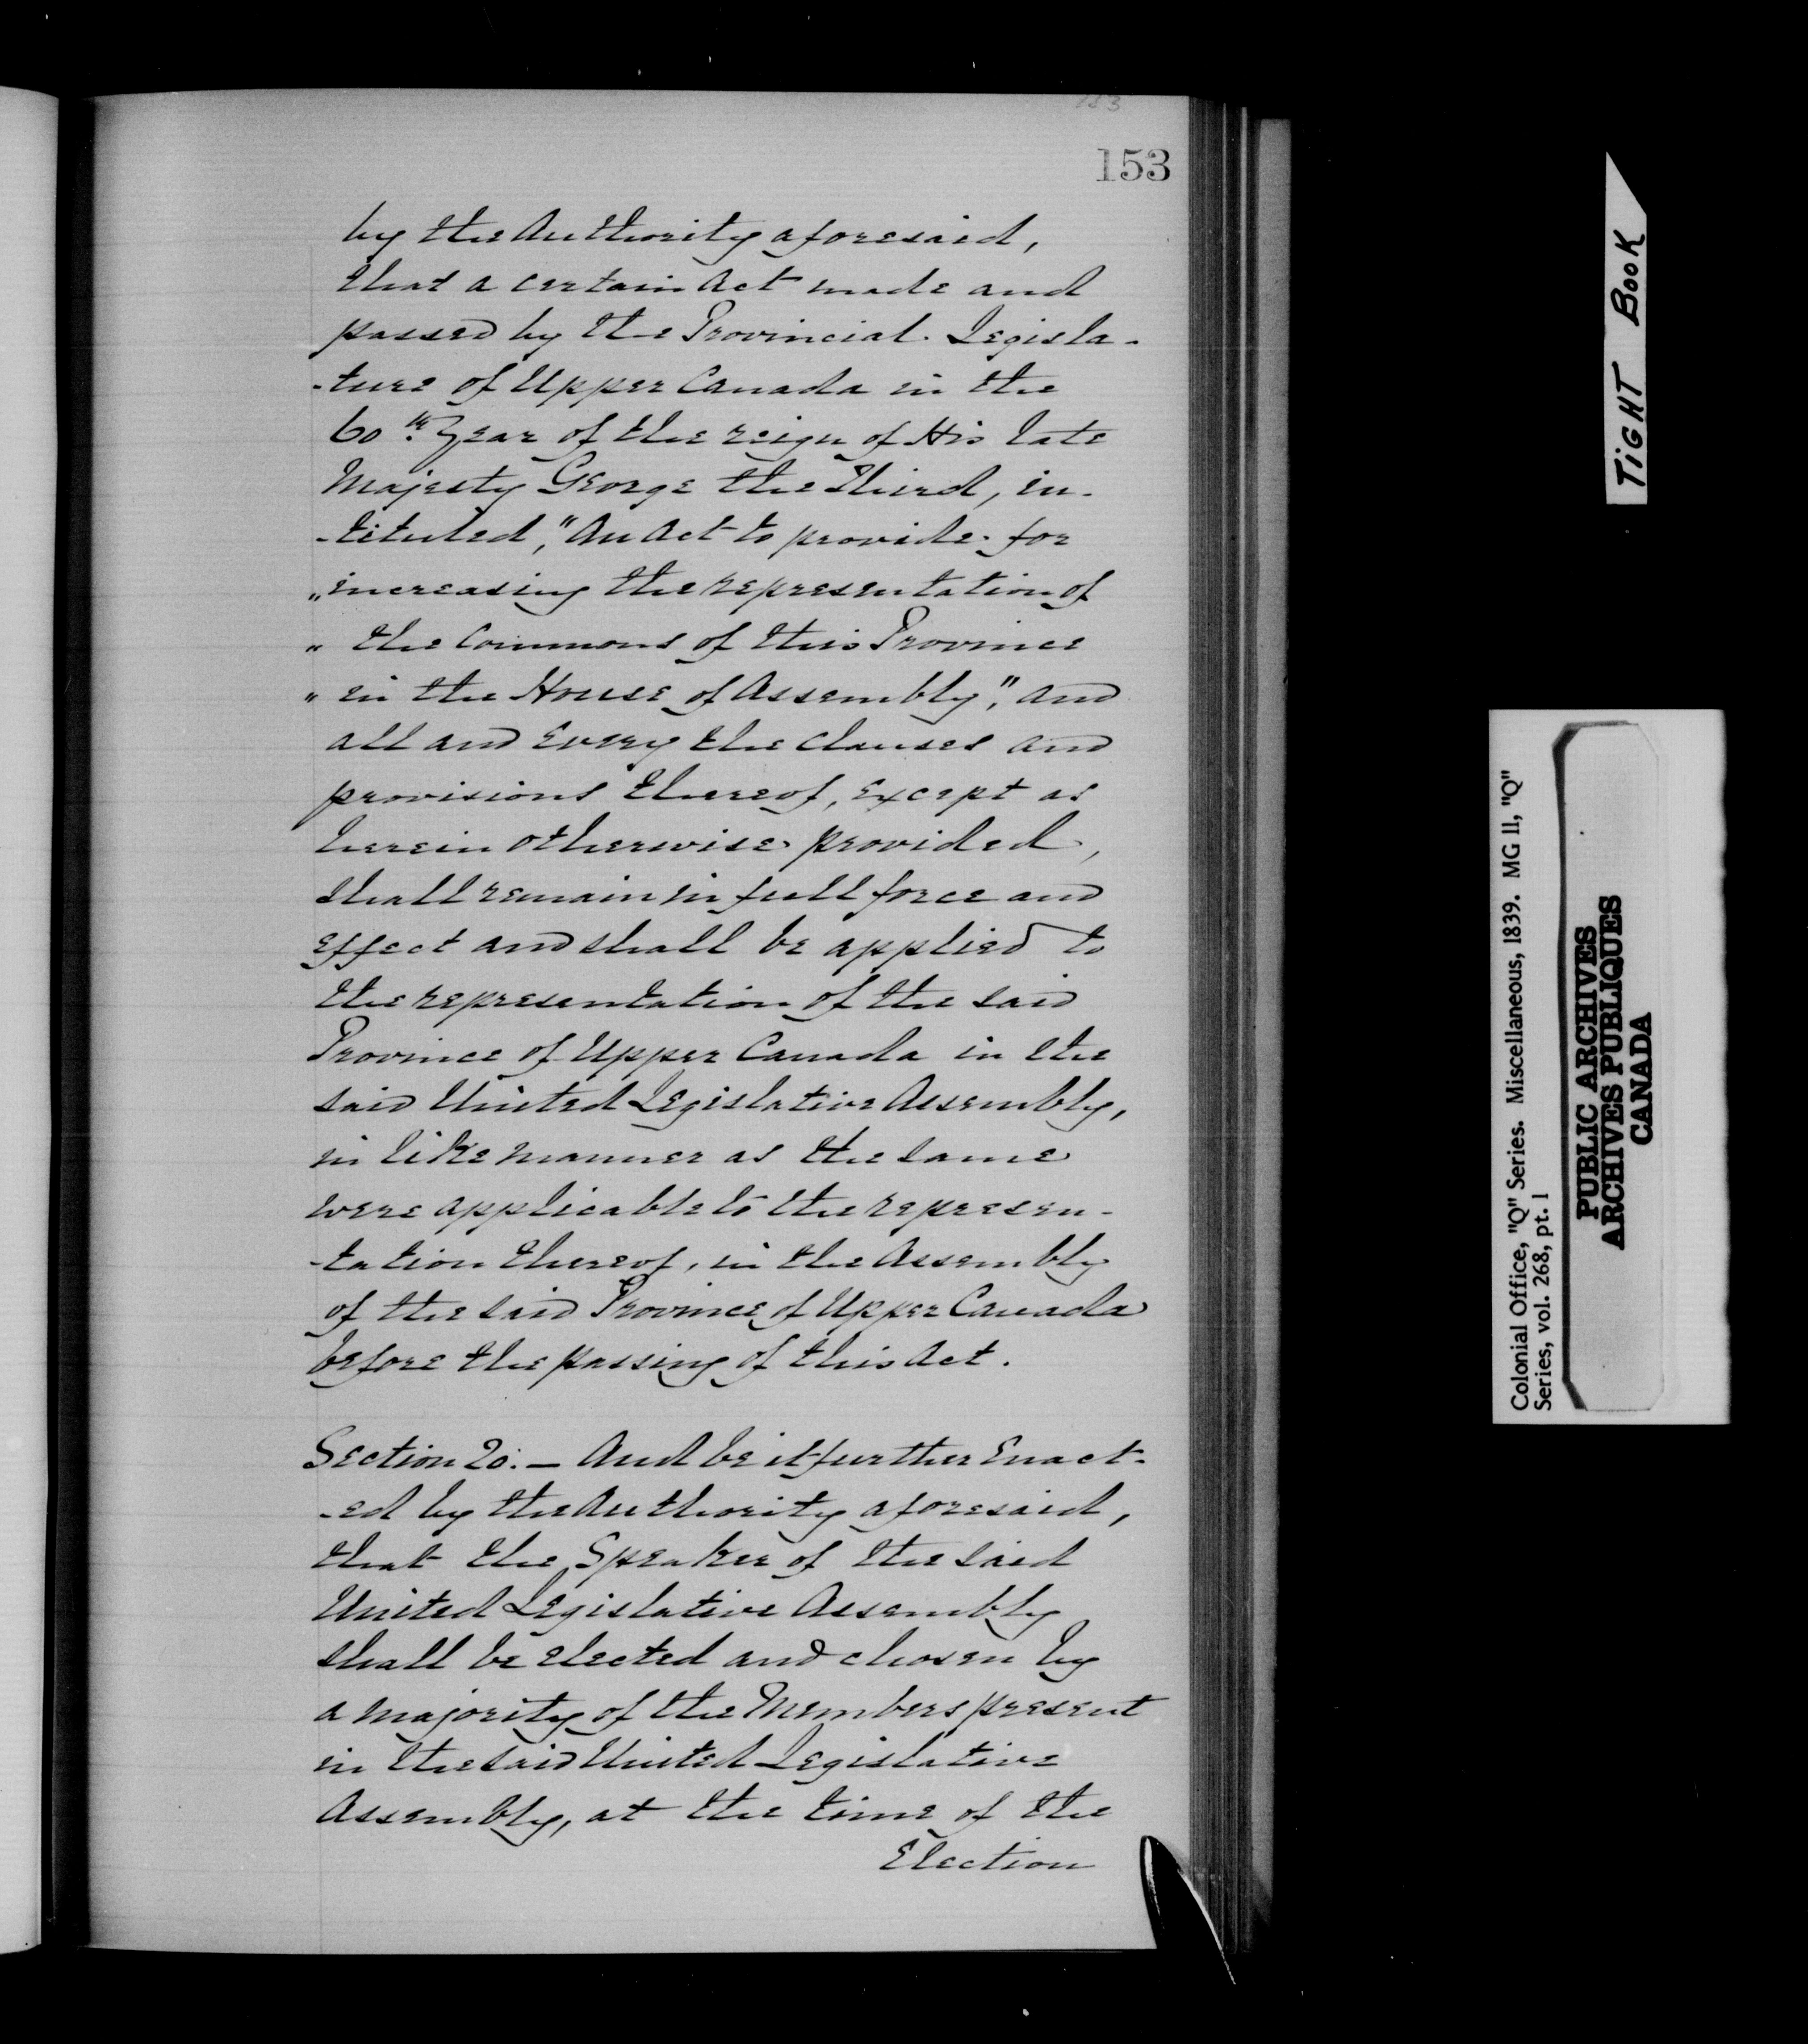 153
153
by the Authority aforesaid,
that a certain Act made and
passed by the Provincial Legisla-
-ture of Upper Canada in the
60th Year of the reign of His late
Majesty George the Third, in-
-tituled, "An Act to provide for
" increasing the representation of
" the Commons of this Province
" in the House of Assembly", and
all and every the clauses and
provisions thereof, except as
herein otherwise provided,
shall remain in full force and
effect and shall be applied to
the representation of the said
Province of Upper Canada in the
said United Legislative Assembly,
in like manner as the same
were applicable to the represen-
-tation thereof, in the Assembly
of the said Province of Upper Canada
before the passing of this Act.
Section 20. — And be it further Enact-
-ed by the Authority aforesaid,
that the Speaker of the said
United Legislative Assembly
shall be elected and chosen by
a majority of the Members present
in the said United Legislative
Assembly, at the time of the
Election
TIGHT BOOK
Colonial Office, "Q" Series. Miscellaneous, 1839. MG 11, "Q"
Series, vol. 268, pt. 1
PUBLIC ARCHIVES
ARCHIVES PUBLIQUES
CANADA